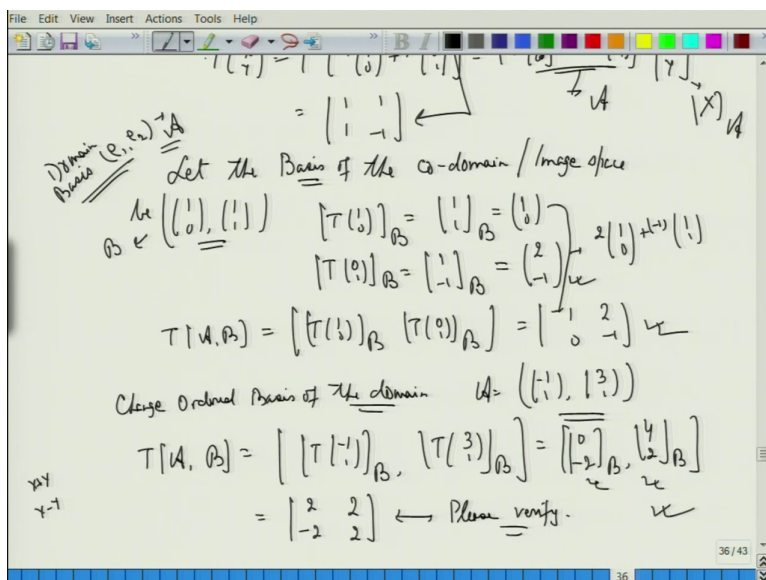 File Edit View Insert Actions Tools Help
= [1 1; 1 -1]
[X]_A
Domain Basis (e1, e2) → A
Let the Basis of the co-domain / Image space
be ((1; 0), (1; 1)) [T(1; 0)]_B = [1; 1]_B = (0; 1)
B
[T(0; 1)]_B = [1; -1]_B = (2; -1) → 2(1; 0) + (-1)(1; 1)
T[A, B] = [[T(1; 0)]_B [T(0; 1)]_B] = [0 2; 1 -1]
Change Ordered Basis of the domain A = ((-1; 1), (3; 1))
T[A, B] = [[T(-1; 1)]_B, [T(3; 1)]_B] = [[0; -2]_B, [4; 2]_B]
x+y
x-y
= [2 2; -2 2] ← Please verify.
36/43
36